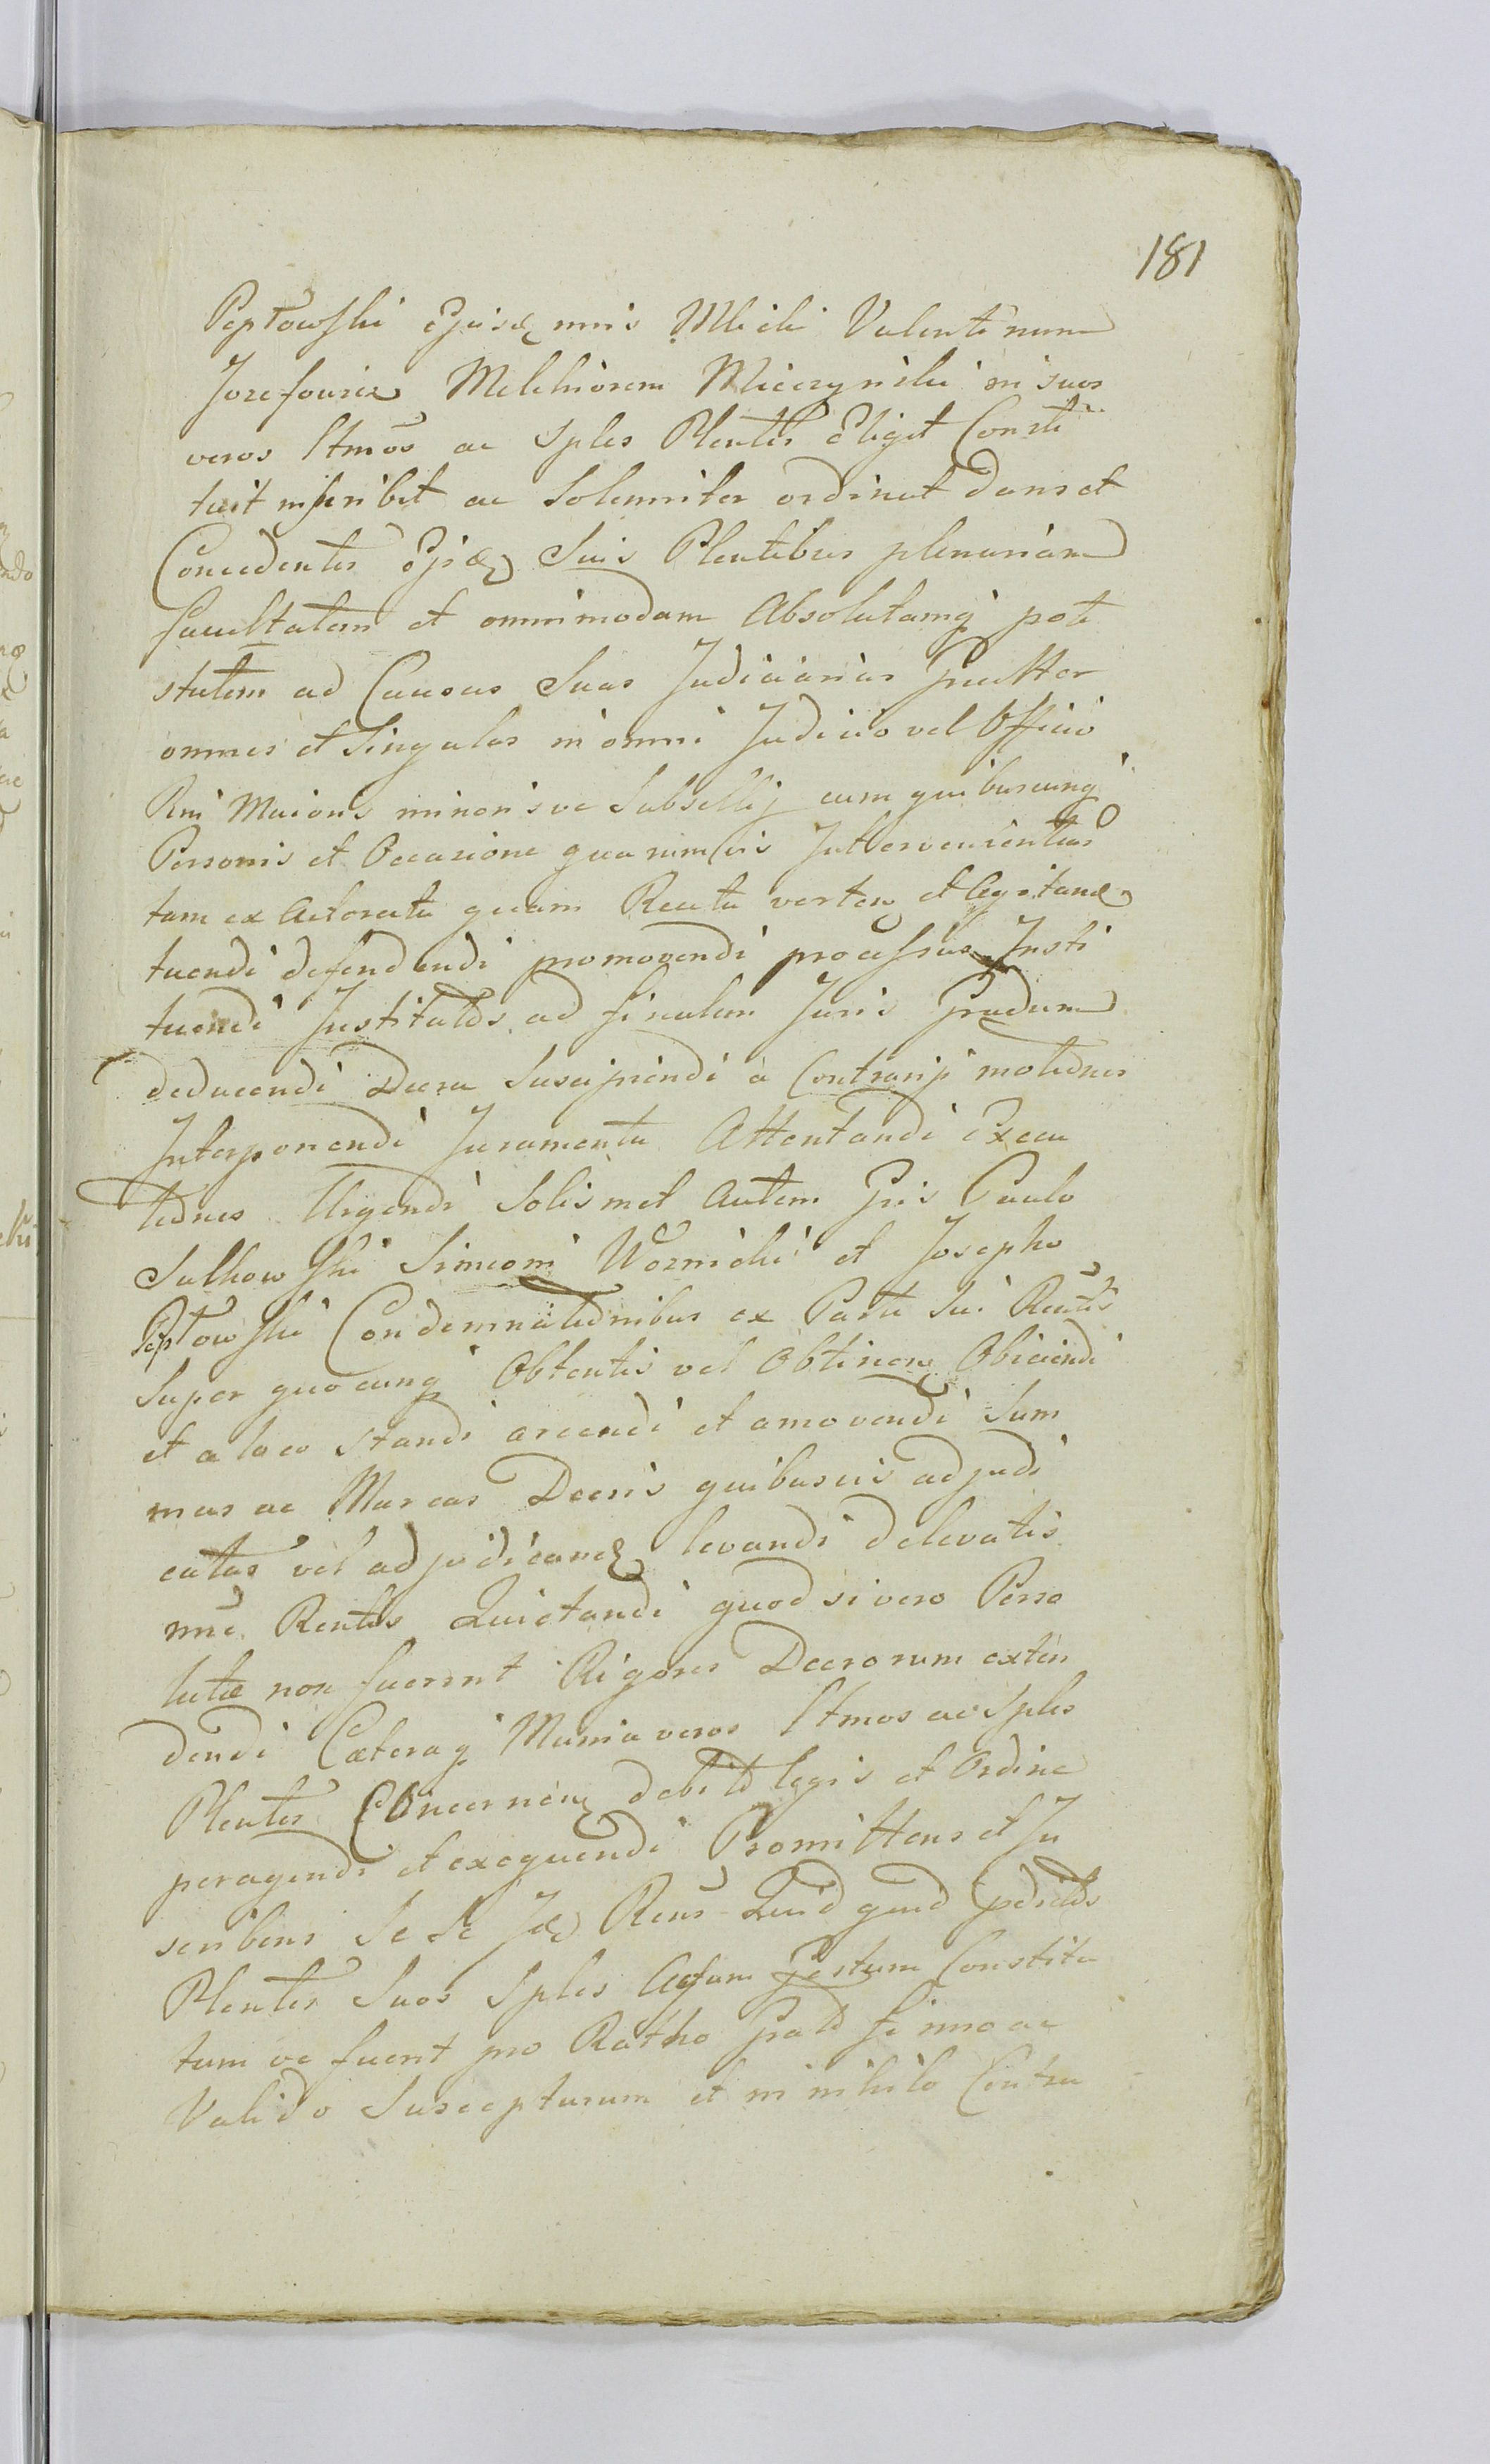 181
Peptowski ejusq mis Mlicki Valentinum
Jozefowicz Melchiorem Miczynski in suos
veros lttmos ac sples Plentes Eligit Consti
tuit inscribit ac Solenniter ordinat Dans et
Concedentes ejsdq Suis Plentibus plenariam
facultatem et omnimodam Absolutamq pote
statem ad Causas Suas Judiciarias praetter
omnes et Singulas in omni Judicio vel Officio
Rni Maioris minorisve Subsellij cum quibuscunq
Personis et Occasione quarumvis Intervenientias
tam ex Actoratu quam Reatu verten et Agitand
tuendi defendendi promovendi processus Insti
tuendi Institutos ad finalem Juris Gradum
deducendi Decra Suscipiendi a Contrarijs motednes
Interponendi Juramenta Attentandi Execu
tednes Urgendi Solismet Autem Gsis Paulo
Sulkowski Simeoni Woznicki et Josepho
Peptowski Condemnatednibus ex Parte Sui Rentis
Super quocunq Obtentis vel Obtinen Obiciendi
et a loco standi arcendi et amovendi Sum
mas ac Marcas Decris quibusvis adjudi
catas vel adjudicand levandi delevatis
nne Rentes Quietandi quod si vero Perso
lutae non fuerint Rigores Decrorum exten
dendi Caeteraq Munia veros lttmos ac sples
Plentes Concernen debito legis et Ordine
peragendi et exequendi Promittens et In
scribens Se Se Jd Rens Quid quid pdictos
Plentes Suos sples Actum Gestum Constitu
tum ve fuerit pro Ratho Grato firmo ac
Valido Suscepturum et in nihilo Contra